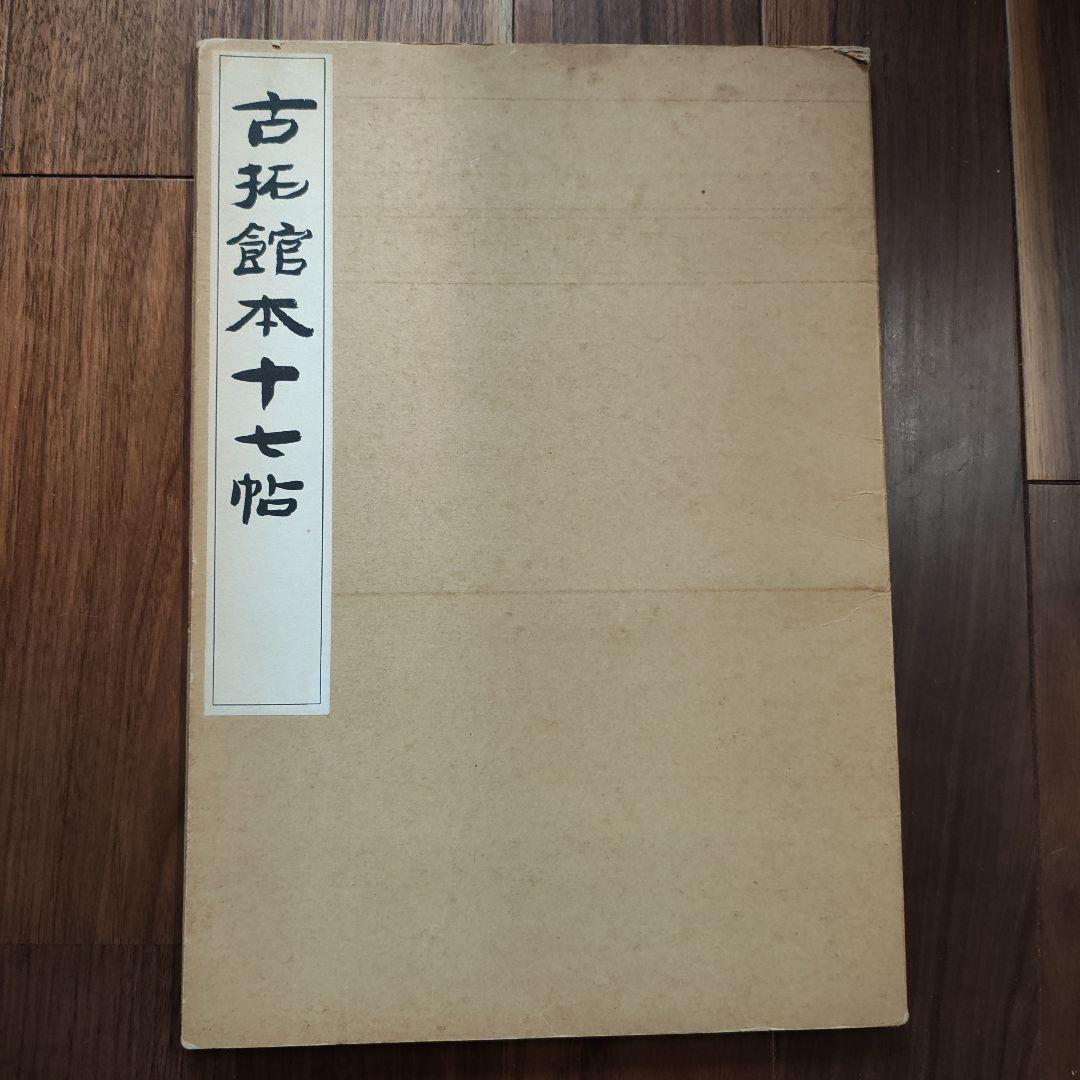 古拓館本十七帖